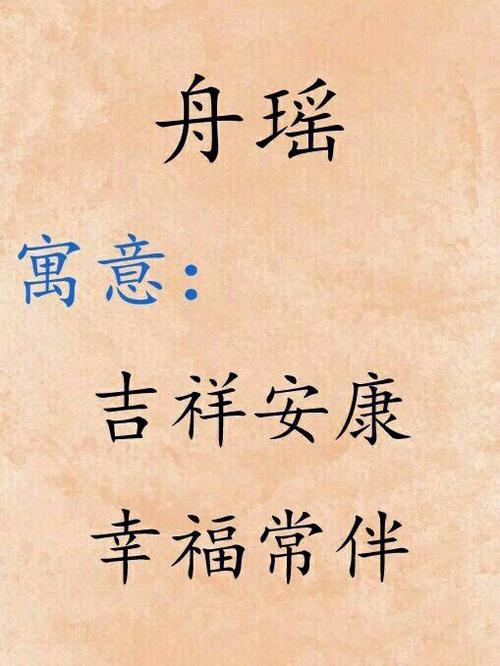 舟瑶
寓意：
吉祥安康
幸福常伴